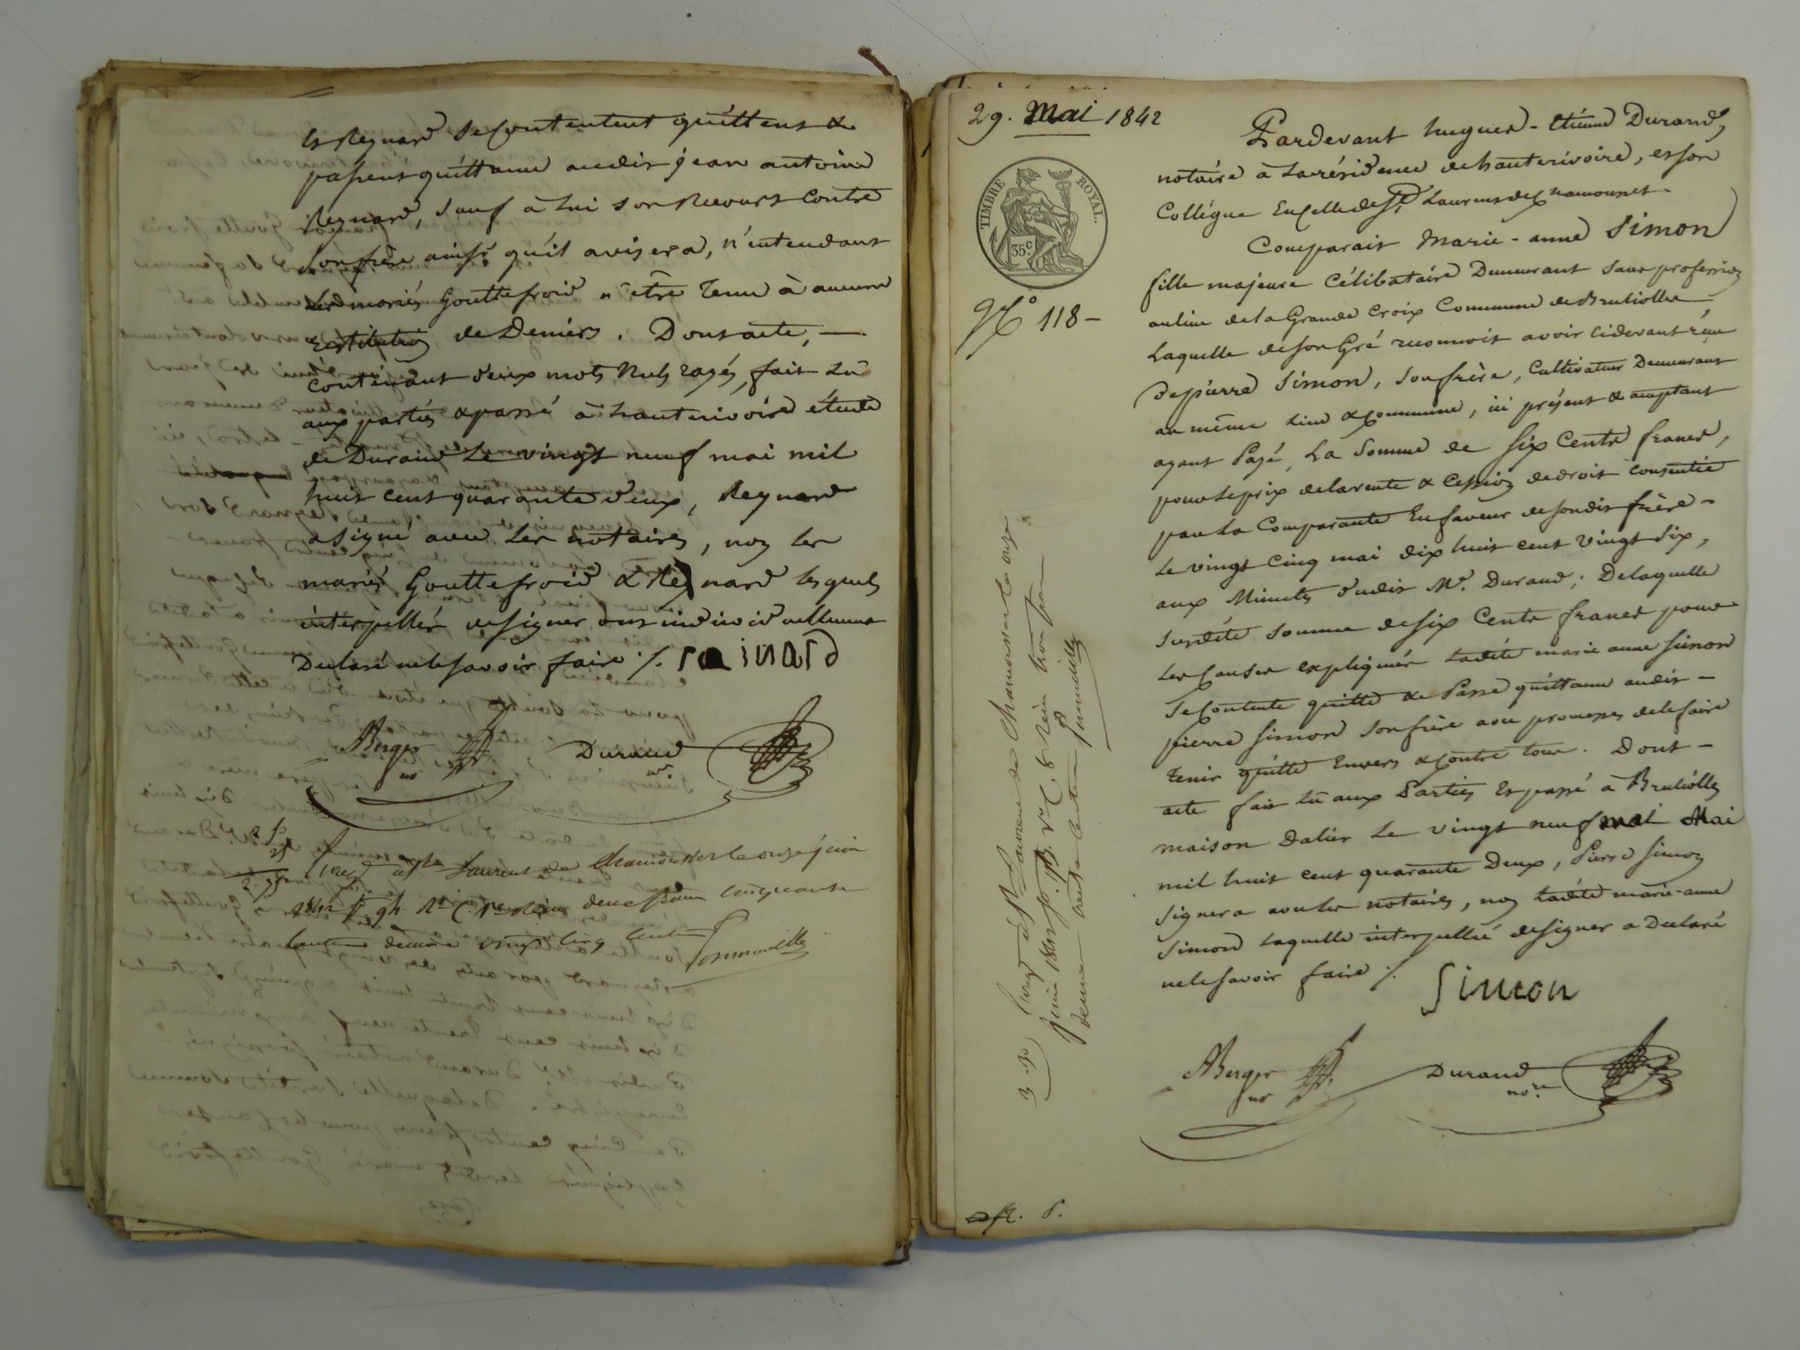 et Reynard se contentent quittent &
passent quittance audit jean antoine
Reynard, sauf à lui son recours contre
son frère ainsi qu'il avisera, n'entendant
Les mariés Gouttefroid n'être tenu à aucune
restitution de Deniers. Dont acte, —
contenant deux mots nuls rayés, fait Lu
aux parties & passé à hauterivoire étude
de Durand Le vingt neuf mai mil
huit cent quarante deux, Reynard
a signé avec Les notaires, non les
mariés Gouttefroid & Reynard lesquels
interpellés de signer, ont individuellement
Déclaré ne le savoir faire ./. rainard
ABerger nre Durand nre
2 f
25
2.75
Enregt à St Laurent de Chamousset le onze juin
1842 fo 9 Ro C. 1re reçu deux francs cinquante
centimes décime vingt cinq centimes
29. Mai 1842
TIMBRE ROYAL.
35 c
No 118 —
Pardevant hugues - Etienne Durand,
notaire à La résidence de hauterivoire, et son
Collégue En celle de St Laurent de Chamousset -
Comparait Marie - anne Simon
fille majeure Célibataire Demeurant Sans profession
au lieu de la Grande Croix Commune de Brullioles
Laquelle de son Gré reconnoit avoir ci devant reçu
De pierre Simon, son frère, Cultivateur Demeurant
au même Lieu & commune, ici présent & acceptant
ayant Payé, La Somme de Six Cents francs,
pour le prix de la vente & Cession de droit consentie
par La Comparante En faveur de son dit frère -
Le vingt cinq mai dix huit cent vingt six,
aux Minutes dudit Me Durand; De laquelle
susdite Somme de six Cents francs pour
Les Causes expliquées Ladite marie anne Simon
se Contente quitte & Passe quittance audit -
pierre Simon son frère avec promesses de le faire
Tenir quitte Envers & contre tous. Dont -
acte fait Lu aux Parties Et passé à Brullioles
maison Dalier Le vingt neuf mai Mai
mil huit cent quarante Deux, Pierre Simon
signera avec les notaires, non Ladite marie-anne
Simon Laquelle interpellée de signer a Déclaré
ne le savoir faire ./.
Simon
ABerger nre Durand nre
Enregt à St Laurent de Chamousset le onze
juin 1842 fo Vo C. 8 reçu trois francs
décime trente centimes
3.30